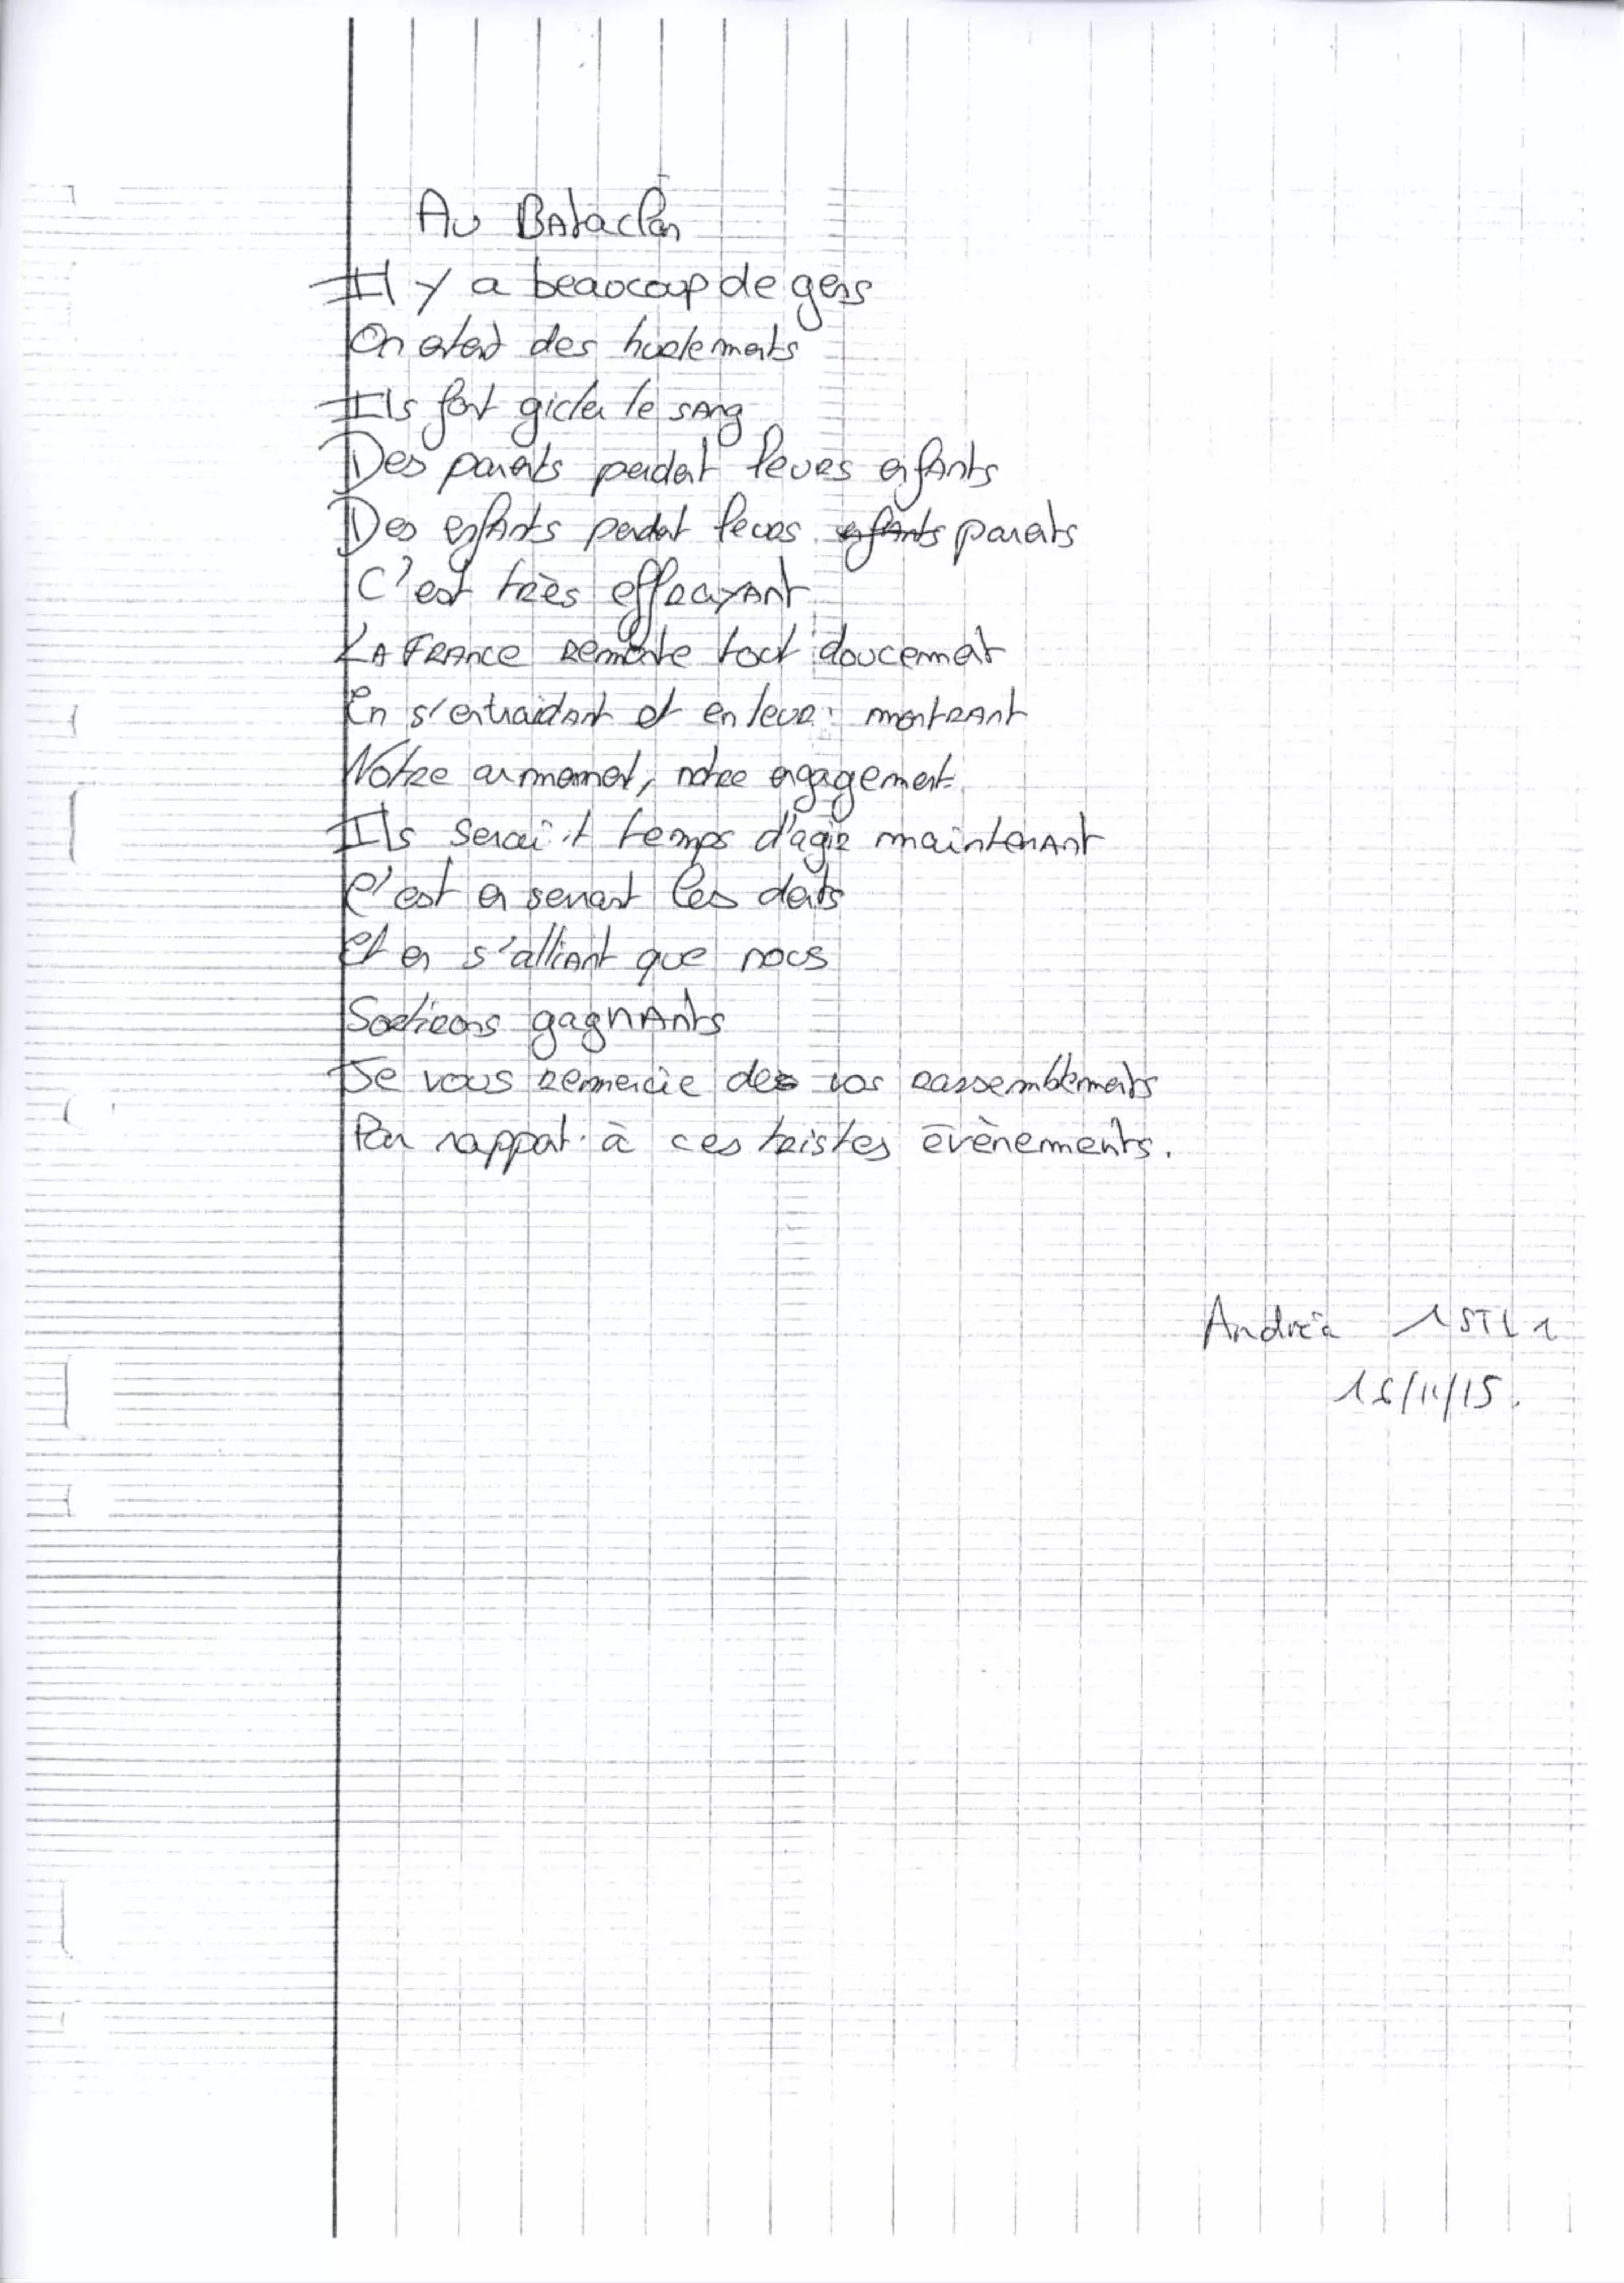 Au Bataclan
Il y a beaucoup de gens
On entend des hurlements
Ils font gicler le sang
Des parents perdent leurs enfants
Des enfants perdent leurs enfants parents
C'est très effrayant
La France remonte tout doucement
En s'entraidant et en leur montrant
Notre armement, notre engagement
Ils serait temps d'agir maintenant
C'est en serrant les dents
Et en s'alliant que nous
Sortirons gagnants
Je vous remercie de vos rassemblements
Par rapport à ces tristes évènements.
Andréa 1STL1
16/11/15.